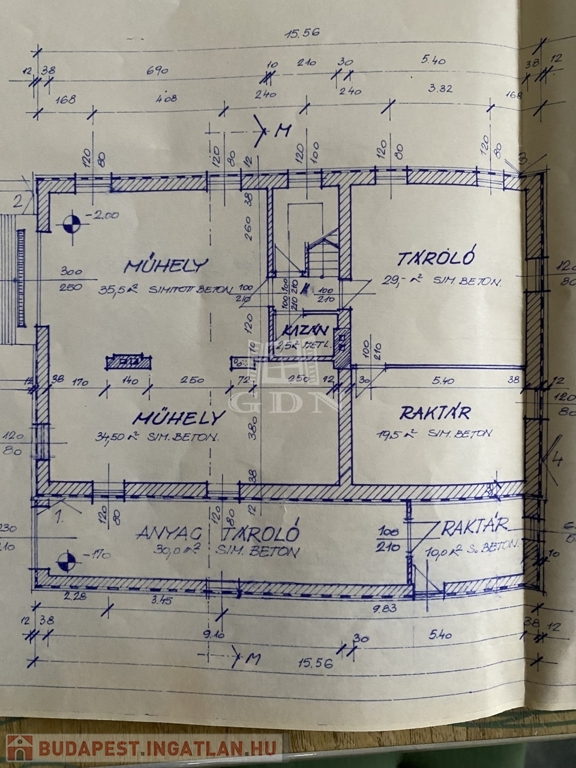 15.56
12 38 690 10 210 30 5.40 38 12
168 4.08 240 240 3.82 168
M
120 80 120 80 12 120 100 120 80 120 80
2
3.
-2.00
38
260
300
260
MŰHELY
35,5 m² SIMÍTOTT BETON
TÁROLÓ
29,- m² SIM. BETON.
100
210
100
210
100
210
120
80
KAZÁN
2,5 m² METL.
120
10
100
210
GDN
12 38 170 140 250 72 250 12 30 5.40 38 12
MŰHELY
34,50 m² SIM. BETON
RAKTÁR
19,5 m² SIM. BETON
120
80
380
38
12
120
80
4
1.
120 80 120 80
ANYAG TÁROLÓ
30,0 m² SIM. BETON
-1.70
100
210
RAKTÁR
10,0 m² S. BETON
230
210
2.28 3.45 9.83
12 38 9.10 30 5.40 38 12
M
15.56
BUDAPEST.INGATLAN.HU